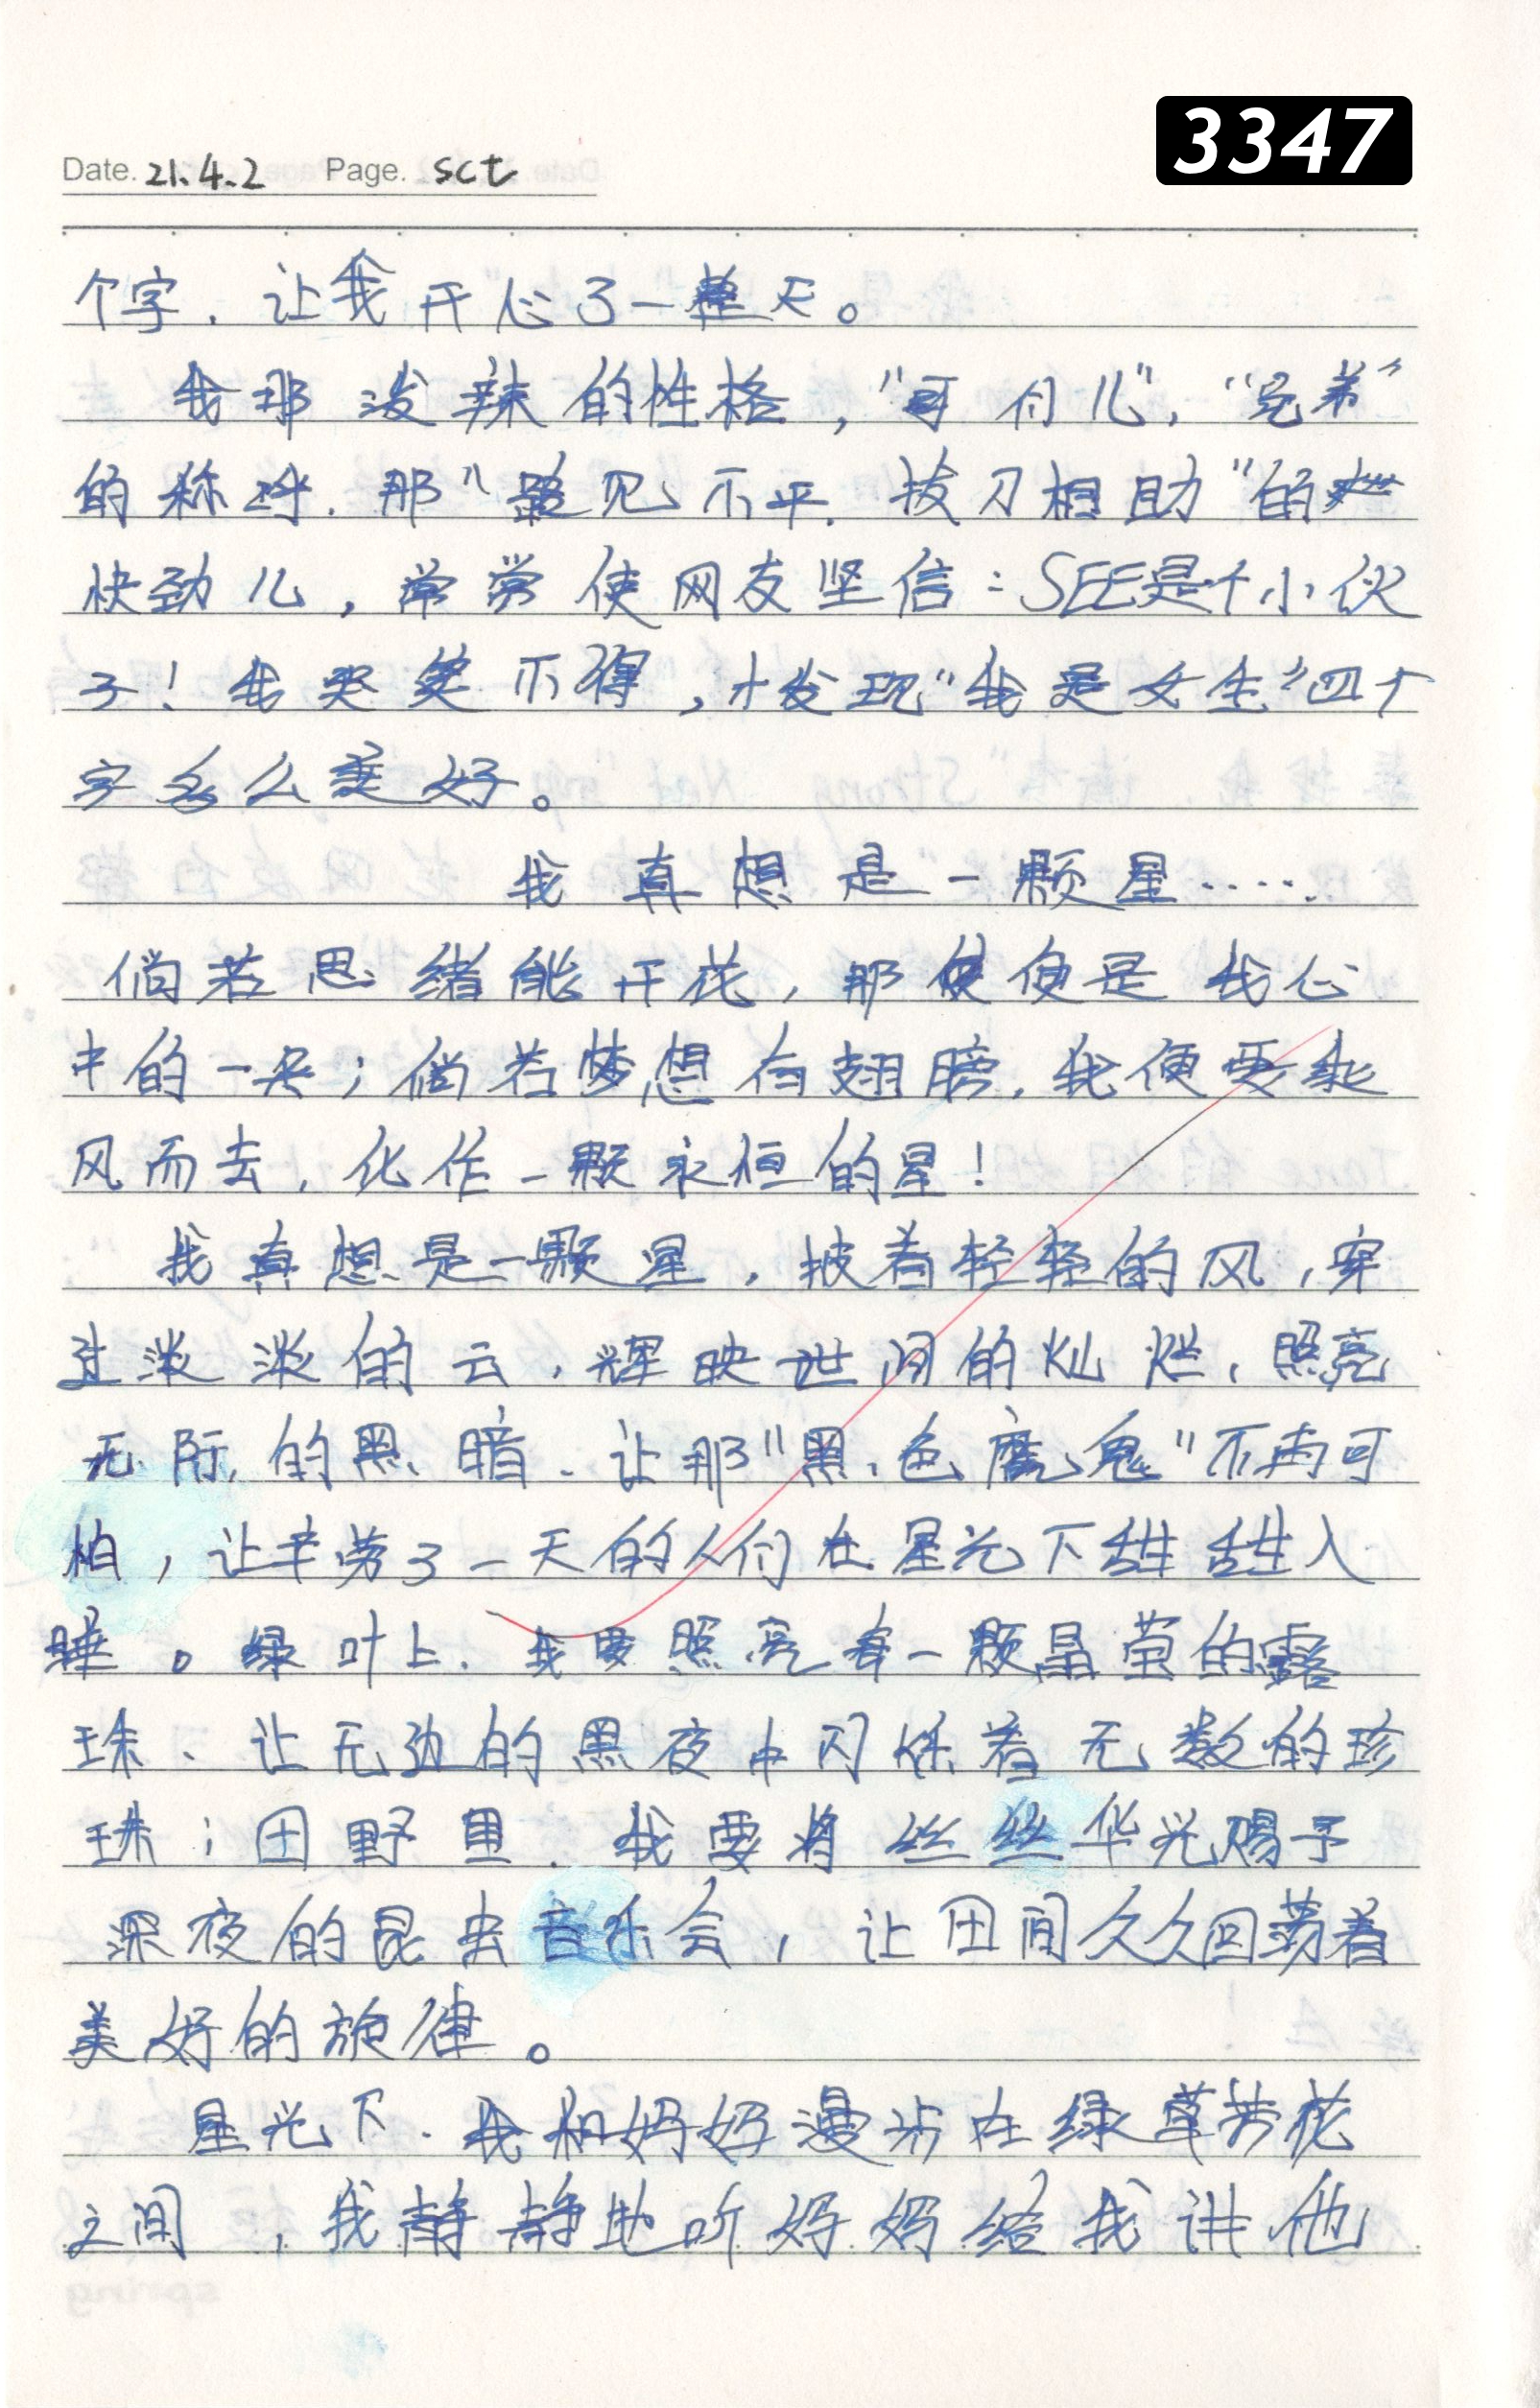 3347
Date. 21.4.2 Page. sct
个字，让我开心了一整天。
我那泼辣的性格，"哥们儿"，"兄弟"
的称呼，那"路见不平，拔刀相助"的
快劲儿，常常使网友坚信：SEE是个小伙
子！我哭笑不得，才发现"我是女生"四个
字多么美好。
我真想是一颗星……
倘若思绪能开花，那便便是我心
中的一朵；倘若梦想有翅膀，我便要乘
风而去，化作一颗永恒的星！
我真想是一颗星，披着轻轻的风，穿
过淡淡的云，辉映世间的灿烂，照亮
无际的黑暗，让那"黑色魔鬼"不再可
怕，让辛劳了一天的人们在星光下甜甜入
睡。绿叶上，我要照亮每一颗晶莹的露
珠、让无边的黑夜中闪烁着无数的珍
珠；田野里，我要将丝丝华光赐予
深夜的昆虫音乐会，让田间久久回荡着
美好的旋律。
星光下，我和妈妈漫步在绿草芳花
之间，我静静地听妈妈给我讲他
spring